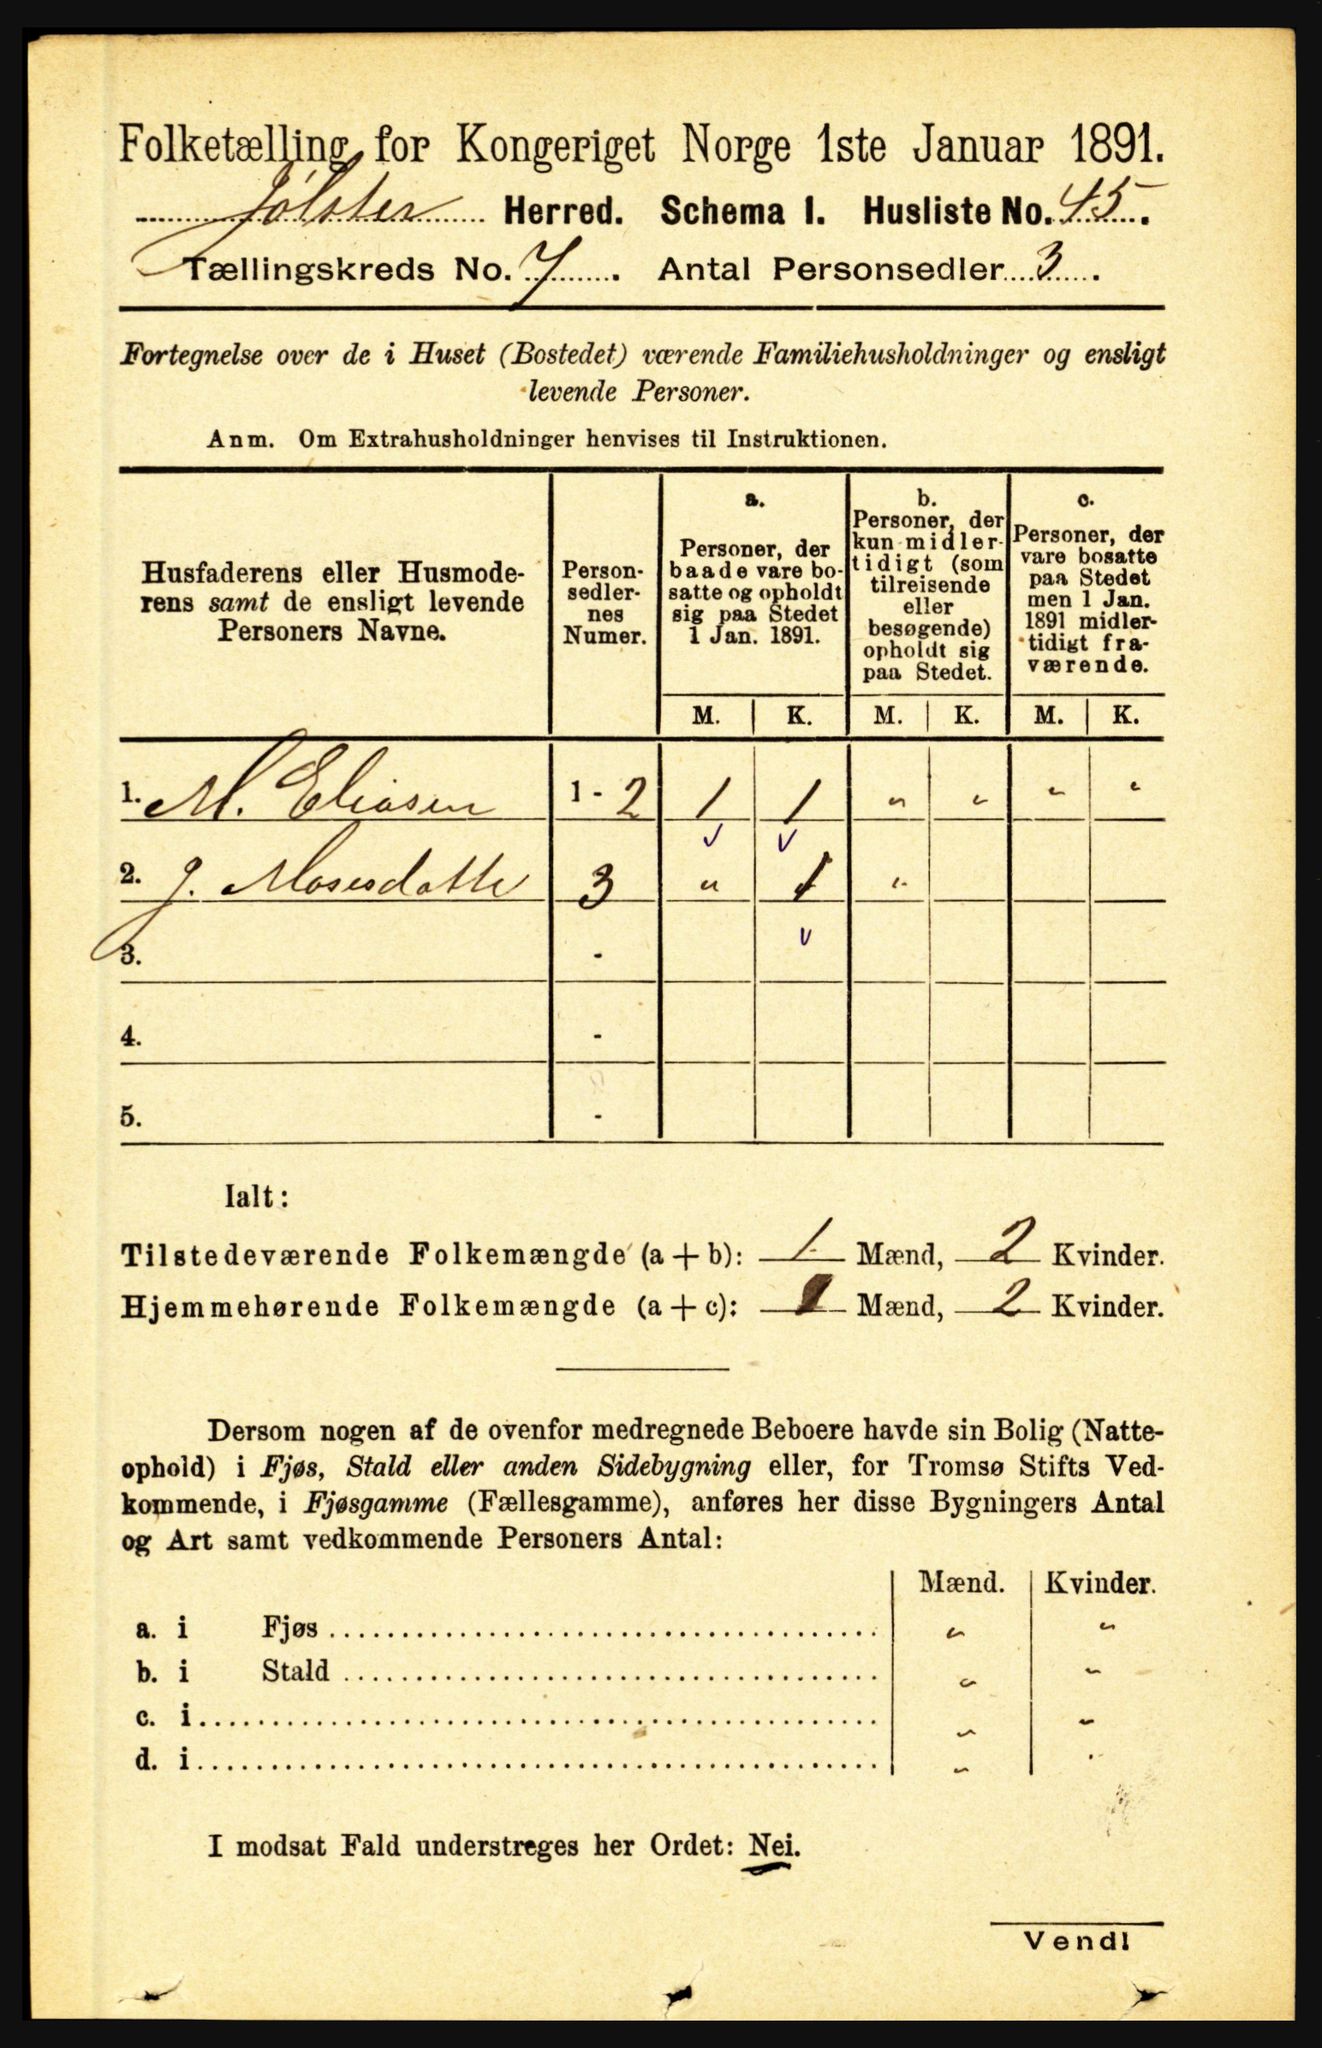 Folketælling for Kongeriget Norge 1ste Januar 1891.
Jølster Herred. Schema I. Husliste No. 45.
Tællingskreds No. 7. Antal Personsedler 3.
Fortegnelse over de i Huset (Bostedet) værende Familiehusholdninger og ensligt
levende Personer.
Anm. Om Extrahusholdninger henvises til Instruktionen.
Husfaderens eller Husmode-
rens samt de ensligt levende
Personers Navne.
Person-
sedler-
nes
Numer.
a.
Personer, der
baade vare bo-
satte og opholdt
sig paa Stedet
1 Jan. 1891.
b.
Personer, der
kun midler-
tidigt (som
tilreisende
eller
besøgende)
opholdt sig
paa Stedet.
c.
Personer, der
vare bosatte
paa Stedet
men 1 Jan.
1891 midler-
tidigt fra-
værende.
M. K. M. K. M. K.
1. M. Eliasen 1 - 2 1 1 " " " "
2. J. Mosesdatte 3 " 1 "
3. -
4. -
5. -
Ialt:
Tilstedeværende Folkemængde (a + b): 1 Mænd, 2 Kvinder.
Hjemmehørende Folkemængde (a + c): 1 Mænd, 2 Kvinder.
Dersom nogen af de ovenfor medregnede Beboere havde sin Bolig (Natte-
ophold) i Fjøs, Stald eller anden Sidebygning eller, for Tromsø Stifts Ved-
kommende, i Fjøsgamme (Fællesgamme), anføres her disse Bygningers Antal
og Art samt vedkommende Personers Antal:
Mænd. Kvinder.
a. i Fjøs " "
b. i Stald " "
c. i " "
d. i " "
I modsat Fald understreges her Ordet: Nei.
Vend!